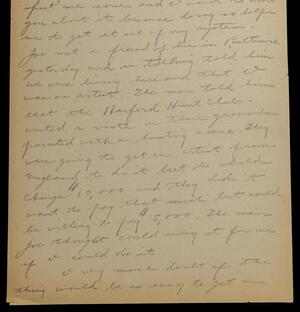 you about it because doing so helps
me to get it out of my system.
Joe met a friend of his in Baltimore
yesterday and in talking told him
we were living here and that I
was an artist. The man told him
that the Harford Hunt Club
wanted a vista on their grounds
painted with a hunting scene. They
were going to get an artist from
England to do it but he would
charge $10,000 and they didn't
want to pay that much but would
be willing to pay $5,000. The man
Joe thought could swing it for me
if I could do it.
I very much doubt if the
thing would be so easy to get in